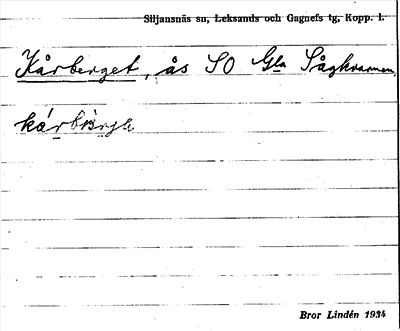 Siljansnäs sn, Leksands och Gagnefs tg, Kopp. l.
Kårberget, ås SO Gla Sågkvarnen.
Bror Lindén 1934